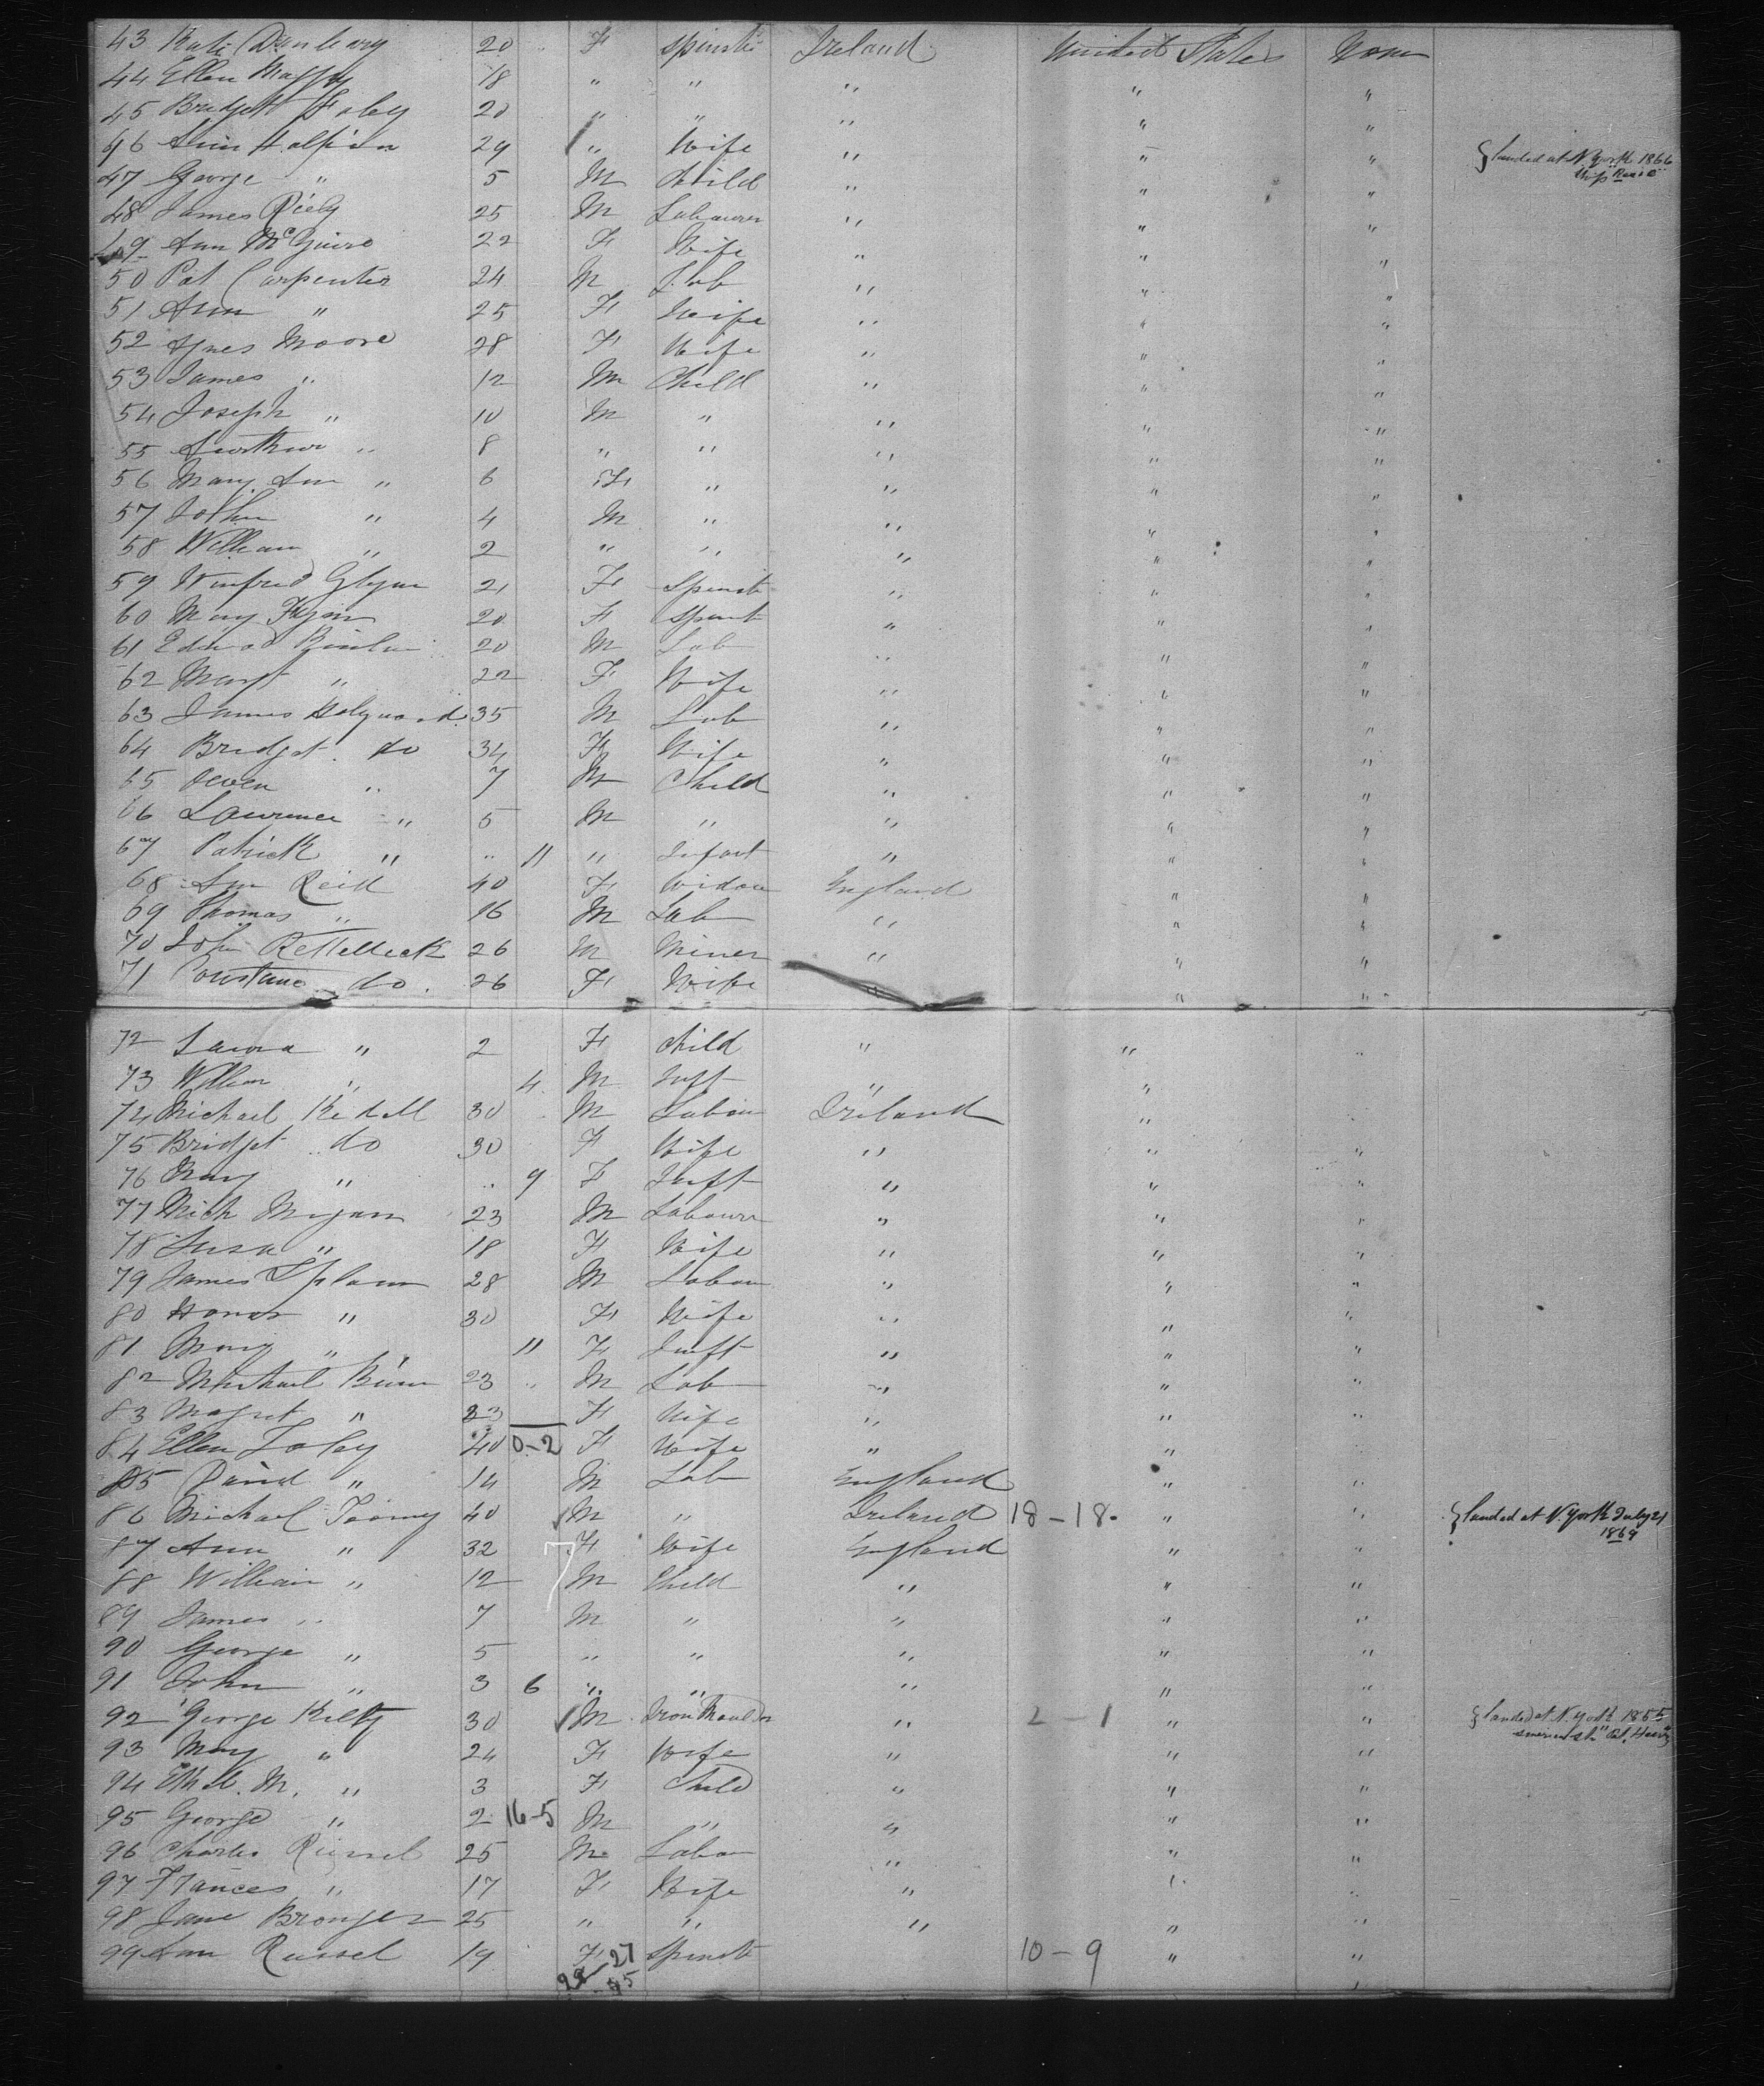 43 Kate Dunleavy 20 F Spinstr Ireland United States None
44 Ellen Maffy 18 " " " " "
45 Bridgett Foley 20 " " " " "
46 Ann Halpian 29 " Wife " " " { landed at N York 1866
Ship
47 George " 5 M Child " " "
48 James Riely 25 M Labourer " " "
49 Ann McGuire 22 F Wife " " "
50 Pat Carpenter 24 M Lab " " "
51 Ann " 25 F Wife " " "
52 Agnes Moore 28 F Wife " " "
53 James " 12 M Child " " "
54 Joseph " 10 M " " " "
55 Aurthur " 8 " " " " "
56 Mary Ann " 6 F " " " "
57 John " 4 M " " " "
58 William " 2 " " " " "
59 Winfred Glynn 21 F Spinstr " " "
60 Mary 20 F Spinst " " "
61 Edward 20 M Lab " " "
62 Margt " 22 F Wife " " "
63 James Holywood 35 M Lab " " "
64 Bridget do 34 F Wife " " "
65 Owen " 7 M Child " " "
66 Lawrence " 5 M " " " "
67 Patrick " " 11 " Infant " " "
68 Ann Reid 40 F Widow England " "
69 Thomas " 16 M Lab " " "
70 John Rettelleck 26 M Miner " " "
71 Constance do. 26 F Wife " " "
72 Laura " 2 F Child " " "
73 William " 4 M Inft " " "
74 Michael 30 M Labour Ireland " "
75 Bridget do 30 F Wife " " "
76 Mary " " 9 F Inft " " "
77 Mich 23 M Labourer " " "
78 Susan " 18 F Wife " " "
79 James 28 M Labour " " "
80 Honor " 30 F Wife " " "
81 Mary " 11 F Inft " " "
82 Michael 23 " M Lab " " "
83 Magret " 23 F Wife " " "
84 Ellen Foley 40 0-2 F Wife " " "
85 David " 14 M Lab England " "
86 Michael Toomy 40 M " Ireland 18-18. " " { landed at N. York July 21
1869
87 Ann " 32 7 F Wife England " "
88 William " 12 M Child " " "
89 James " 7 M " " " "
90 George " 5 " " " " "
91 John " 3 6 " " " " "
92 George Kelly 30 M Iron Moulder " 2-1 " " { landed at N. York 1865
93 Mary " 24 F Wife " " "
94 Ethel. M. " 3 F Child " " "
95 George " 2 16-5 M " " " "
96 Charles Russel 25 M Labour " " "
97 Frances " 17 F Wife " " "
98 Jane 25 " " " " "
99 Ann Russel 19 F Spinstr 10-9 " "